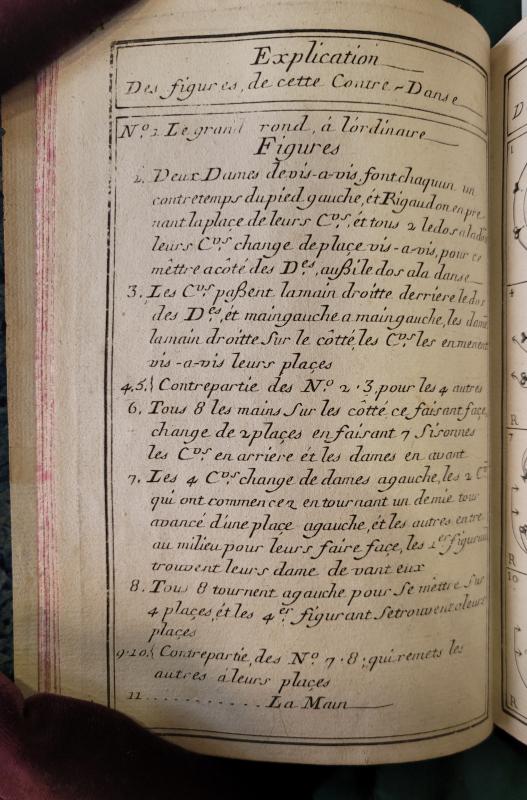 Explication
Des figures, de cette Contre-Danse
N.º 1 Le grand rond, à l'ordinaire
Figures
2. Deux Dames de vis-a-vis, font chaquun un
contretemps du pied gauche, ét Rigaudon en pre
nant la plaçe de leurs C.vrs, ét tous 2 le dos a la danse
leurs C.vrs change de plaçe vis-a-vis, pour ce
mêttre a coté des D.es, außi le dos a la danse
3. Les C.vrs paßent la main droitte derriere le dos
des D.es, ét main gauche a main gauche, les dames
la main droitte sur le côtté, les C.vrs les enmenent
vis-a-vis leurs plaçes
4,5.} Contrepartie des N.º 2·3, pour les 4 autres
6. Tous 8 les mains sur les côtté ce faisant façe,
change de 2 plaçes en faisant 7 Sisonnes
les C.vrs en arriere ét les dames en avant
7. Les 4 C.vrs change de dames a gauche, les 2 C.vrs
qui ont commencez en tournant un demie tour
avancé d'une plaçe a gauche, ét les autres entre
au milieu pour leurs faire façe, les 1.er figurant
trouvent leurs dame de vant eux
8. Tous 8 tournent a gauche pour se mêttre sur
4 plaçes, ét les 4 er figurant se trouvent a leurs
plaçes
9·10.} Contrepartie, des N.º 7·8, qui remets les
autres à leurs plaçes
11 ............ La Main
D
1
4
R
7
R
10
R